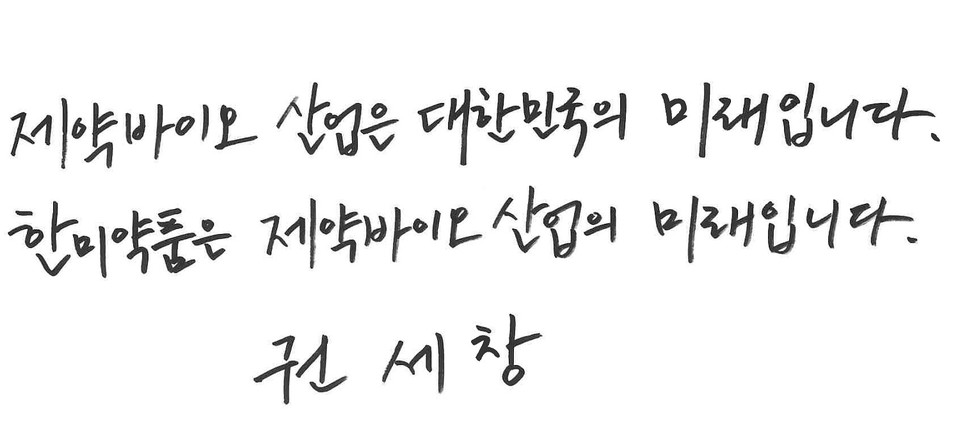 제약바이오 산업은 대한민국의 미래입니다.
한미약품은 제약바이오 산업의 미래입니다.
권 세 창